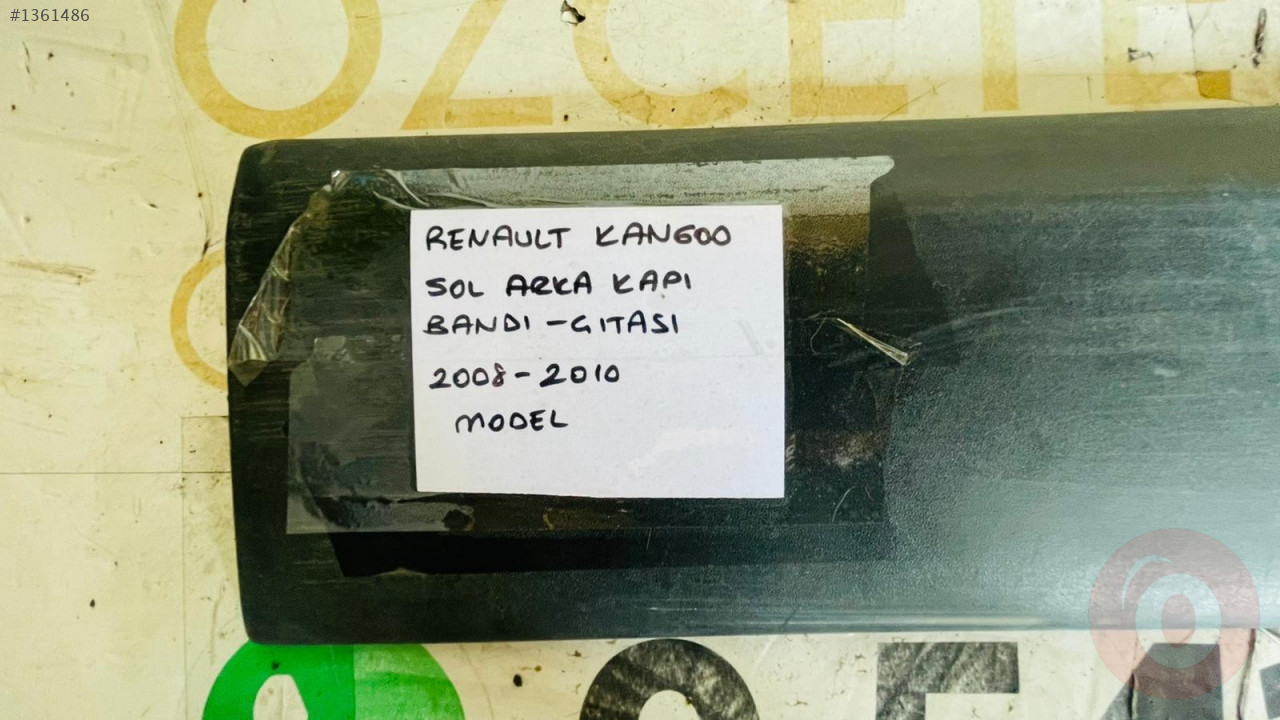 #1361486
OZCETE
RENAULT KANGOO
SOL ARKA KAPI
BANDI - GITASI
2008 - 2010
MODEL